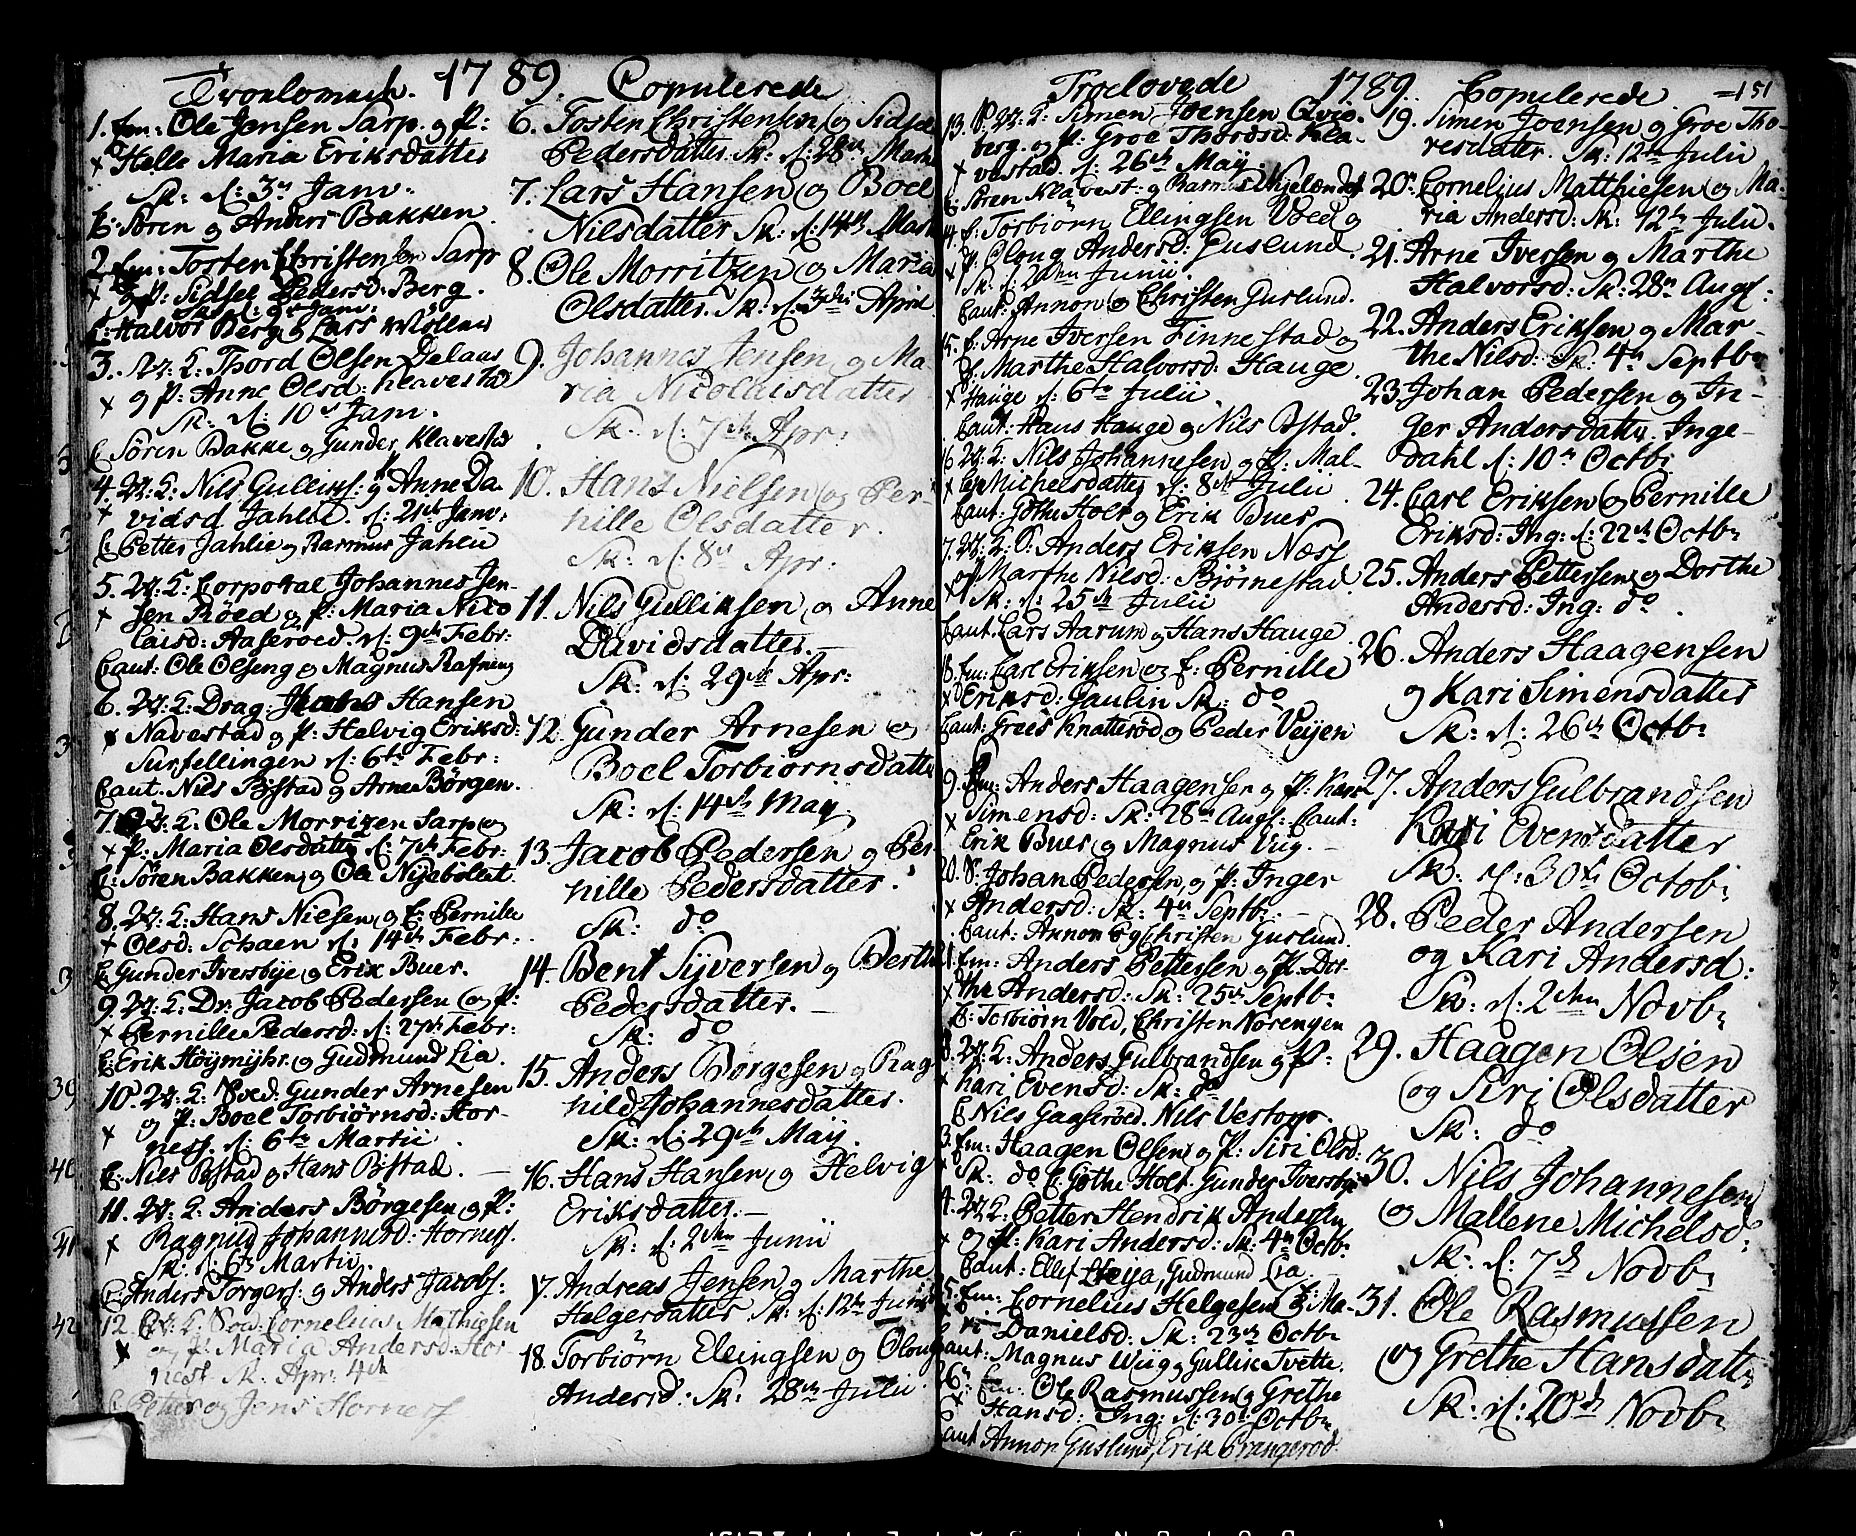 Troelovede. 1789. Copulerede
1. Em: Ole Jensen Sarp. og P:
Helle Maria Eriksdatter
Sk: d: 3 Janv.
C: Søren og Anders Bakken
2. Em: Tosten Christensen Sarp
og P: Sidsel Pedersd: Berg.
C: Halvor Berg & Lars
3. Thord Olsen Delaus
og P: Anne Olsd: Klavestad
Sk: d: 10 Janv.
C Søren Bakke og Gunder Klavestad
4. Nils Gulliks: og Anne Da
vidsd Jahlie. d: 21 Janv:
C: Petter Jahlie og Rasmus Jahlie
5. Corporal Johannes Jen-
sen Röed og P: Maria Nico
laisd: Aaseröed. d: 9de Febr:
Caut: Ole Olseng og Magnus Rafneng
6. Drag: Hansen
Navestad og P: Helvig Eriksd:
Surfellingen d: 6te Febr:
Caut. Nils Bøstad og Arne Børgen.
7. Ole Morritzen Sarp og
P: Maria Olsdatter d: 7de Febr:
C: Søren Bakken og Ole Nyebøllet.
8. Hans Nielsen og E: Pernille
Olsd: Schaen d: 14de Febr:
C: Gunder Iversbye og Erik Buer.
9. Dr: Jacob Pedersen og P:
Pernille Pedersd: d: 27de Febr:
C: Erik Höymyhr og Gudmund Lia.
10. Gunder Arnesen
og P: Boel Torbiørnsd: Hor-
ness. d: 6te Martii
C: Nils Bøstad og Hans Bøstad.
11. Anders Börgesen og P:
Ragnild Johannesd: Horness.
Sk: d: 6te Martii.
C: Anders Torgers: og Anders Jacobs:
12. Cornelius Mathiesen
og P: Maria Andersd: Hor-
ness. Sk. Apr: 4de
C og Jens Horness
6. Tosten Christensen og Sidsel
Pedersdatter. Sk: d: 28de Martii
7. Lars Hansen og Boel
Nilsdatter Sk: d: 14de Martii
8. Ole Morritzen og Maria
Olsdatter. Sk: d: 3de April
9. Johannes Jensen og Ma-
ria Nicolaisdatter
Sk: d: 7de Apr:
10. Hans Nielsen og Per
nille Olsdatter.
Sk: d: 8de Apr:
11. Nils Gulliksen og Anne
Davidsdatter.
Sk: d: 29de Apr:
12. Gunder Arnesen og
Boel Torbiørnsdatter
Sk: d: 14de May
13. Jacob Pedersen og Per
nille Pedersdatter.
Sk: do
14. Bent Syversen og Berthe
Pedersdatter.
Sk: do
15. Anders Börgesen og Rag
hild Johannesdatter.
Sk: d: 29de May.
16. Hans Hansen og Helvig
Eriksdatter.
Sk: d: 2den Junii
17. Andreas Jensen og Marthe
Helgerdatter Sk: d: 12te Junii
18. Torbiörn Ellingsen og Oloug
Andersd: Sk: 28de Julii
Troelovede 1789. Copulerede =151
13. Simen Joensen Qvio-
berg. og P: Groe Thordsd: Kla-
vestad. d: 26de May.
C: Søren Klavest: og Rasmus
14. E: Torbiørn Ellingsen Voed og
P: Oloug Andersd: Guslund.
Sk: d: 2den Junii.
Caut: Annon og Christen Guslund.
15. E: Arne Iversen Finnestad og
P: Marthe Halvorsd: Hauge
Hauge d: 6te Julii
Caut: Hans Hauge og Nils Bstad.
16 Nils Johannesen og P: Mal-
Michelsdatter d: 8de Julii
Caut: Göthe Holt og Erik Buer
17. Anders Eriksen Næss
og Marthe Nilsd: Bjørnestad
Sk: d: 25de Julii
Caut. Lars Aarum og Hans Hauge
18. Em: Carl Eriksen og E: Pernille
Eriksd: Gaulin Sk: do
Caut: Grels Knatteröd og Peder Veyen
19. Em: Anders Haagensen og P: Kari
Simensd: Sk: 28de Aug: Caut:
Erik Buer og Magnus Viig.
20. Johan Pedersen og P: Inger
Andersd: Sk: 4de Septb:
Caut: Annon og Christen Guslund.
21. Em: Anders Pettersen og P: Dor-
the Andersd: Sk: 25de Septb:
C: Torbiørn Voed, Christen Nørengen
Anders Gulbrandsen og P:
Kari Evensd: Sk: do
C Nils Gaaseröed. Nils Vestogr.
3. Em: Haagen Olsen og P: Siri Olsd:
Sk: do C. Gøthe Holt Gunder Iversbye
4. Petter Hendrik Andersen
og P: Kari Andersd: Sk: 4de Octb:
Caut: Ellef Heija, Gudmund Lia
5. Em: Cornelius Helgesen & Ma-
Danielsd: Sk: 23de Octb:
Caut: Magnus Wiig og Gullik Tvette.
26. Em: Ole Rasmussen og Grethe
Hansd: Ing: d: 30te Octb:
Caut Annon Guslund, Erik Prangeröd
19. Simen Joensen og Groe Tho-
resdatter. Sk: 12te Julii
20. Cornelius Matthiesen og Ma-
ria Andersd: Sk: 12te Julii.
21. Arne Iversen og Marthe
Halvorsd: Sk: 28de Aug:
22. Anders Eriksen og Mar-
the Nilsd: Sk: 4de Septb:
23. Johan Pedersen og In-
ger Andersdatter. Inge-
dahl d: 10de Octb:
24. Carl Eriksen og Pernille
Eriksd: Ing: d: 22de Octb:
25. Anders Pettersen og Dorthe
Andersd: Ing: do.
26. Anders Haagensen
og Kari Simensdatter
Sk: d: 26de Octb:
27. Anders Gulbrandsen
Kari Evensdatter
Sk: d: 30te Octob:
28. Peder Andersen
og Kari Andersd:
Sk: d: 2den Novb:
29. Haagen Olsen
og Siri Olsdatter
Sk: do
30. Nils Johannesen
og Mallene Michelsd:
Sk: d: 7de Novb:
31. Ole Rasmussen
og Grethe Hansdatter
Sk: d: 20de Novb: